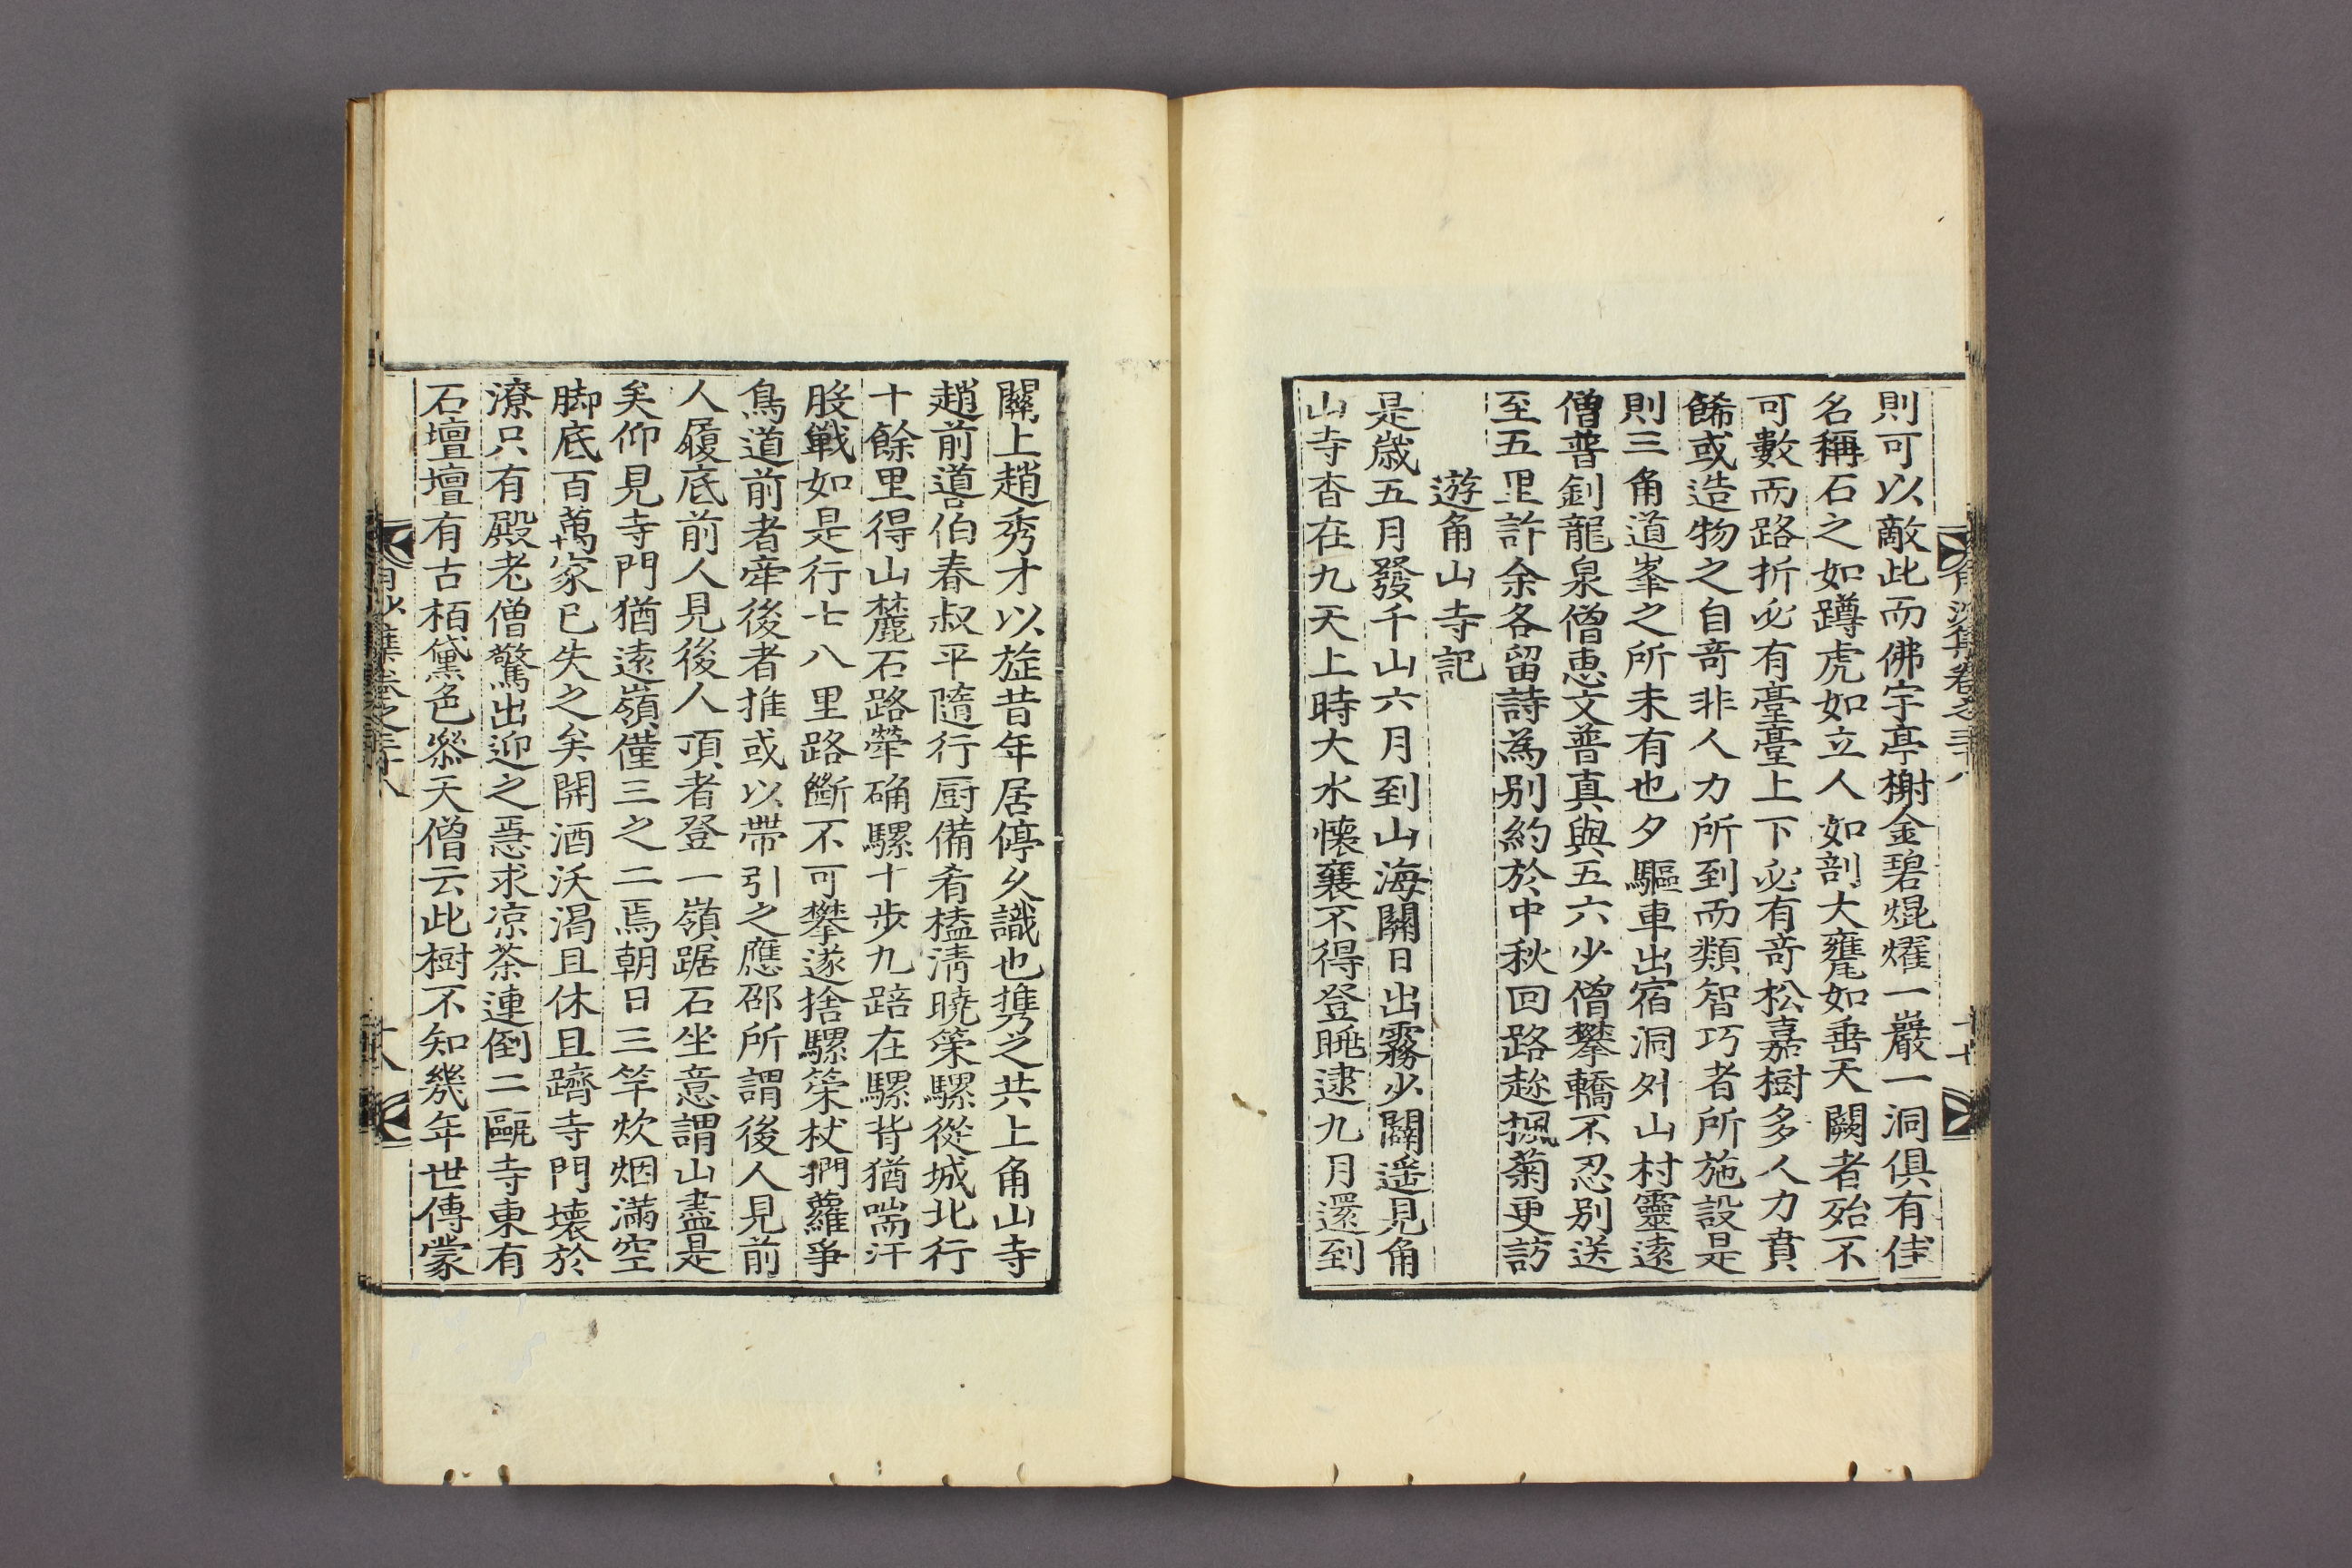 月沙集卷之三十八
十七
則可以敵此而佛宇亭榭金碧焜燿一巖一洞俱有佳
名稱石之如蹲虎如立人如剖大甕如垂天闕者殆不
可數而路折必有臺臺上下必有竒松嘉樹多人力賁
餙或造物之自竒非人力所到而類智巧者所施設是
則三角道峯之所未有也夕驅車出宿洞外山村靈遠
僧普釗龍泉僧惠文普真與五六少僧攀轎不忍別送
至五里許余各留詩為別約於中秋回路趁楓菊更訪
遊角山寺記
是歲五月發千山六月到山海關日出霧少闢遥見角
山寺杳在九天上時大水懷襄不得登眺逮九月還到
關上趙秀才以旋昔年居停久識也携之共上角山寺
趙前遵伯春叔平隨行厨備肴榼淸曉策騾從城北行
十餘里得山麓石路犖确騾十步九踣在騾背猶喘汗
股戰如是行七八里路斷不可攀遂捨騾策杖捫蘿爭
鳥道前者牽後者推或以帶引之應邵所謂後人見前
人履底前人見後人頂者登一嶺踞石坐意謂山盡是
矣仰見寺門猶遠嶺僅三之二焉朝日三竿炊烟滿空
脚底百萬家已失之矣開酒沃渴且休且躋寺門壊於
潦只有殿老僧驚出迎之亟求凉茶連倒二甌寺東有
石壇壇有古栢黛色叅天僧云此樹不知幾年世傳蒙
月沙集卷之三十八
十八